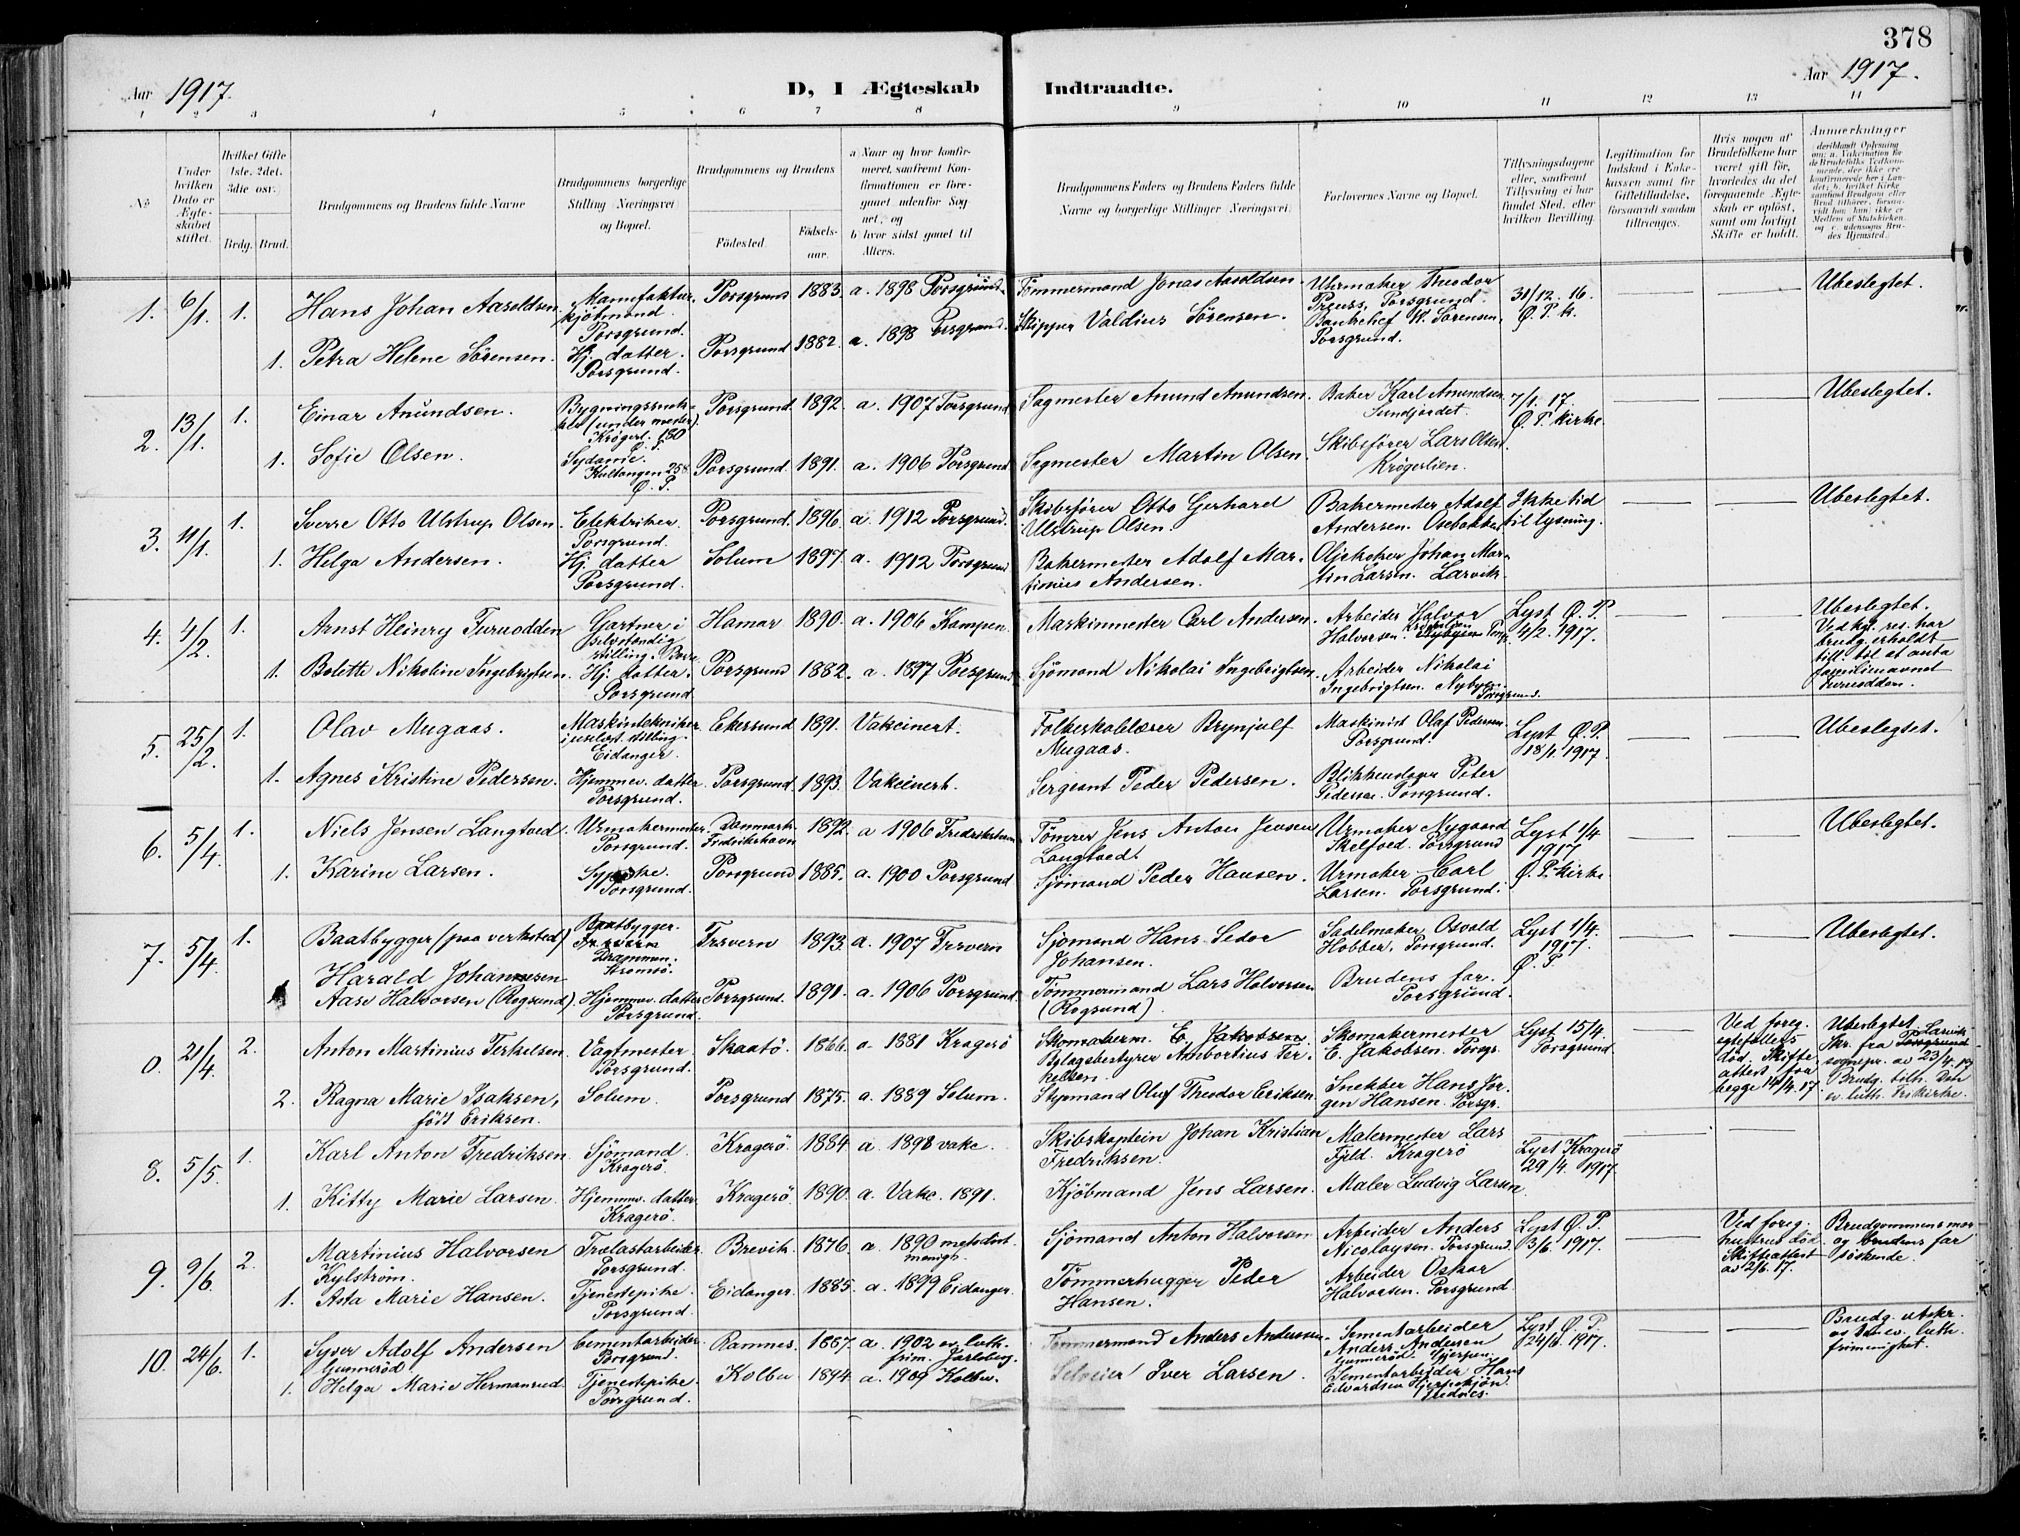 378
Aar 1917.
D, I Ægteskab Indtraadte.
Aar 1917.
1 2 3 4 5 6 7 8 9 10 11 12 13 14
No
Under hvilken Dato er Ægteskabet stiftet.
Hvilket Gifte 1ste. 2det. 3die osv.
Brdg. Brud.
Brudgommens og Brudens fulde Navne
Brudgommens borgerlige Stilling Næringsvei og Bopæl.
Brudgommens og Brudens
Fødested. Fødselsaar.
a Naar og hvor konfirmeret, samfremt Konfirmationen er foregaaet udenfor Sognet, og
b hvor sidst gaaet til Alters.
Brudgommens Faders og Brudens Faders fulde Navne og borgerlige Stillinger Næringsvei.
Forlovernes Navne og Bopæl.
Tillysningsdagene eller, samfremt Tillysning ei har fundet Sted, efter hvilken Bevilling.
Legitimation for Indskud i Enkekassen samt for Giftetilladelse, forsaavidt saadan tiltrænges.
Hvis nogen af Brudefolkene har været gift før, hvorledes da det foregaaende Ægteskab er opløst, samt om lovligt Skifte er holdt.
Anmærkninger
1. 6/1. 1. Hans Johan Aasoldsen Manufakturkjøbmand. Porsgrund. Porsgrund 1883. a. 1898 Porsgrund. Tømmermand Jonas Aasoldsen Uhrmaker Theodor Preuss, Porsgrund. 31/12. 16. Ø. P. k. Ubeslegtet.
1. Petra Helene Sörensen. Hj. datter. Porsgrund. Porsgrund 1882. a. 1898 Porsgrund. Skipper Valdius Sörensen. Bankchef W. Sörensen, Porsgrund.
2. 13/1. 1. Einar Anundsen. Porsgrund. 1892. a. 1907 Porsgrund Sagmester Anund Anundsen. Baker Karl Anundsen Sundjordet. 7/1. 17. Ø. P. kirke. Ubeslegtet.
1. Sofie Olsen. Sydame. Kultangen 258 Ø. P. Porsgrund. 1891. a. 1906 Porsgrund Sagmester Martin Olsen. Skibsfører Lars Olsen. Krøgerlien.
3. 11/1. 1. Sverre Otto Ulstrup Olsen. Elektriker Porsgrund. Porsgrund. 1896. a. 1912 Porsgrund. Skibsfører Otto Gerhard Ulstrup Olsen. Bakermester Adolf Andersen. Osebakken Ikke tid til lysning. Ubeslegtet.
1. Helga Andersen. Hj. datter Porsgrund. Solum 1897. a. 1912 Porsgrund Bakermester Adolf Martinius Andersen. Oljekoker Johan Martin Larsen. Larvik.
4. 4/2. 1. Arnst Heinry Furuodden Gartner i selvstændig stilling. Hamar 1890. a. 1906 Kampen. Maskinmester Carl Andersen. Arbeider Halvor Halvorsen. Lyst Ø. P. 4/2. 1917. Ubeslegtet. Ved kgl. res. har brudg. erholdt till. til at anta familienavnet Furuodden.
1. Bolette Nikoline Ingebrigtsen. Hj. datter. Porsgrund Porsgrund 1882. a. 1897 Porsgrund Sjömand Nikolai Ingebrigtsen. Arbeider Nikolai Ingebrigtsen. Nybyen. Porsgrund.
5. 25/2. 1. Olav Mugaas. Maskintekniker Eidanger. Ekersund 1891. Vakcinert. Folkeskolelærer Brynjulf Mugaas. Maskinist Olaf Pedersen Porsgrund. Lyst Ø. P. 18/2. 1917. Ubeslegtet.
1. Agnes Kristine Pedersen. Hjemmev. datter. Porsgrund. Porsgrund. 1893. Vakcinert. Sergeant Peder Pedersen. Blikkenslager Peter Pedersen. Porsgrund.
6. 5/4. 1. Niels Jensen Langtved. Urmakermester. Porsgrund. Danmark. Fredrikshavn 1892. a 1906 Fredrikshavn Tømrer Jens Anton Jensen Langtved. Urmaker Nygaard Skelfved. Porsgrund Lyst 1/4 1917. Ø. P. Kirke Ubeslegtet.
1. Karine Larsen. Sypike. Porsgrund. Porsgrund 1885. a. 1900 Porsgrund Sjömand Peder Hansen. Urmaker Carl Larsen. Porsgrund.
7. 5/4. 1. Baatbygger (paa verksted) Harald Johannesen Baatbygger. Drammen. Strömsö. 1893. a. 1907 Sjömand Hans Peder Johansen. Sadelmaker Osvald Hobber, Porsgrund. Lyst 1/4. 1917. Ø. P. Ubeslegtet.
Aase Halvorsen (Rogsund) Hjemmev. datter Porsgrund. Porsgrund. 1891. a. 1906 Porsgrund. Tømmermand Lars Halvorsen (Rogsund). Brudens far. Porsgrund.
0. 21/4. 2. Anton Martinius Terkelsen. Vagtmester Porsgrund. Skaatö. 1866. a. 1881 Kragerö Skomakerm. E. Jakobsen Bylagsbestyrer Ambortius Terkelsen. Skomakermester E. Jakobsen. Porsgr. Lyst 15/4. Porsgrund. Ved foreg. egtefællers död. Skifteattest for begge 14/4. 17. Ubeslegtet. Skr. fra Larvik sognepr. av 23/4. 17. Brudg. tilh. Den ev. luth. Frikirke.
2. Ragna Marie Isaksen, født Eriksen. Solum. Porsgrund 1875. a. 1889 Solum. Styrmand Oluf Theodor Eriksen Snekker Hans Jorgen Hansen. Porsgr.
8. 5/5. 1. Karl Anton Fredriksen. Sjömand. Kragerö. Kragerö. 1884. a. 1898 vakc. Skibskaptein Johan Kristian Fredriksen. Malermester Lars Fjeld. Kragerö Lyst Kragerö 29/4. 1917.
1. Kitty Marie Larsen. Hjemmev. datter Kragerö. Kragerö 1890. a. Vakc. 1891. Kjöbmand Jens Larsen. Maler Ludvig Larsen
9. 9/6. 2. Martinius Halvorsen Kylström. Trælastarbeider Porsgrund. Brevik. 1876. a. 1890 metodistmenigh. Sjömand Anton Halvorsen Arbeider Anders Nicolaysen. Porsgrund. Lyst Ø. P. 3/6. 1917. Ved foreg. hustrus död Skifteattest av 2/6. 17. Brudgommens mor og brudens far söskende.
1. Asta Marie Hansen. Tjenestepike. Porsgrund. Eidanger. 1885. a. 1899 Eidanger. Tömmerhugger Peder Hansen. Arbeider Oskar Halvorsen. Porsgrund.
10. 24/6. 1. Syver Adolf Andersen Gunneröd Cementarbeider Porsgrund. Ramnes. 1887. a. 1902 ev. luth. frim. Jarlsberg. Tömmermand Anders Anderssen. Sementarbeider Anders Andersen Gunneröd. Gjerpen. Lyst Ø. P. 24/6. 1917. Brudg. utskr. av ev. luth. frimenighet.
1. Helga Marie Hermanrud Tjenestepike. Porsgrund. Kolbu 1894. a. 1909 Kolbu. Selveier Iver Larsen. Sementarbeider Hans Edvardsen